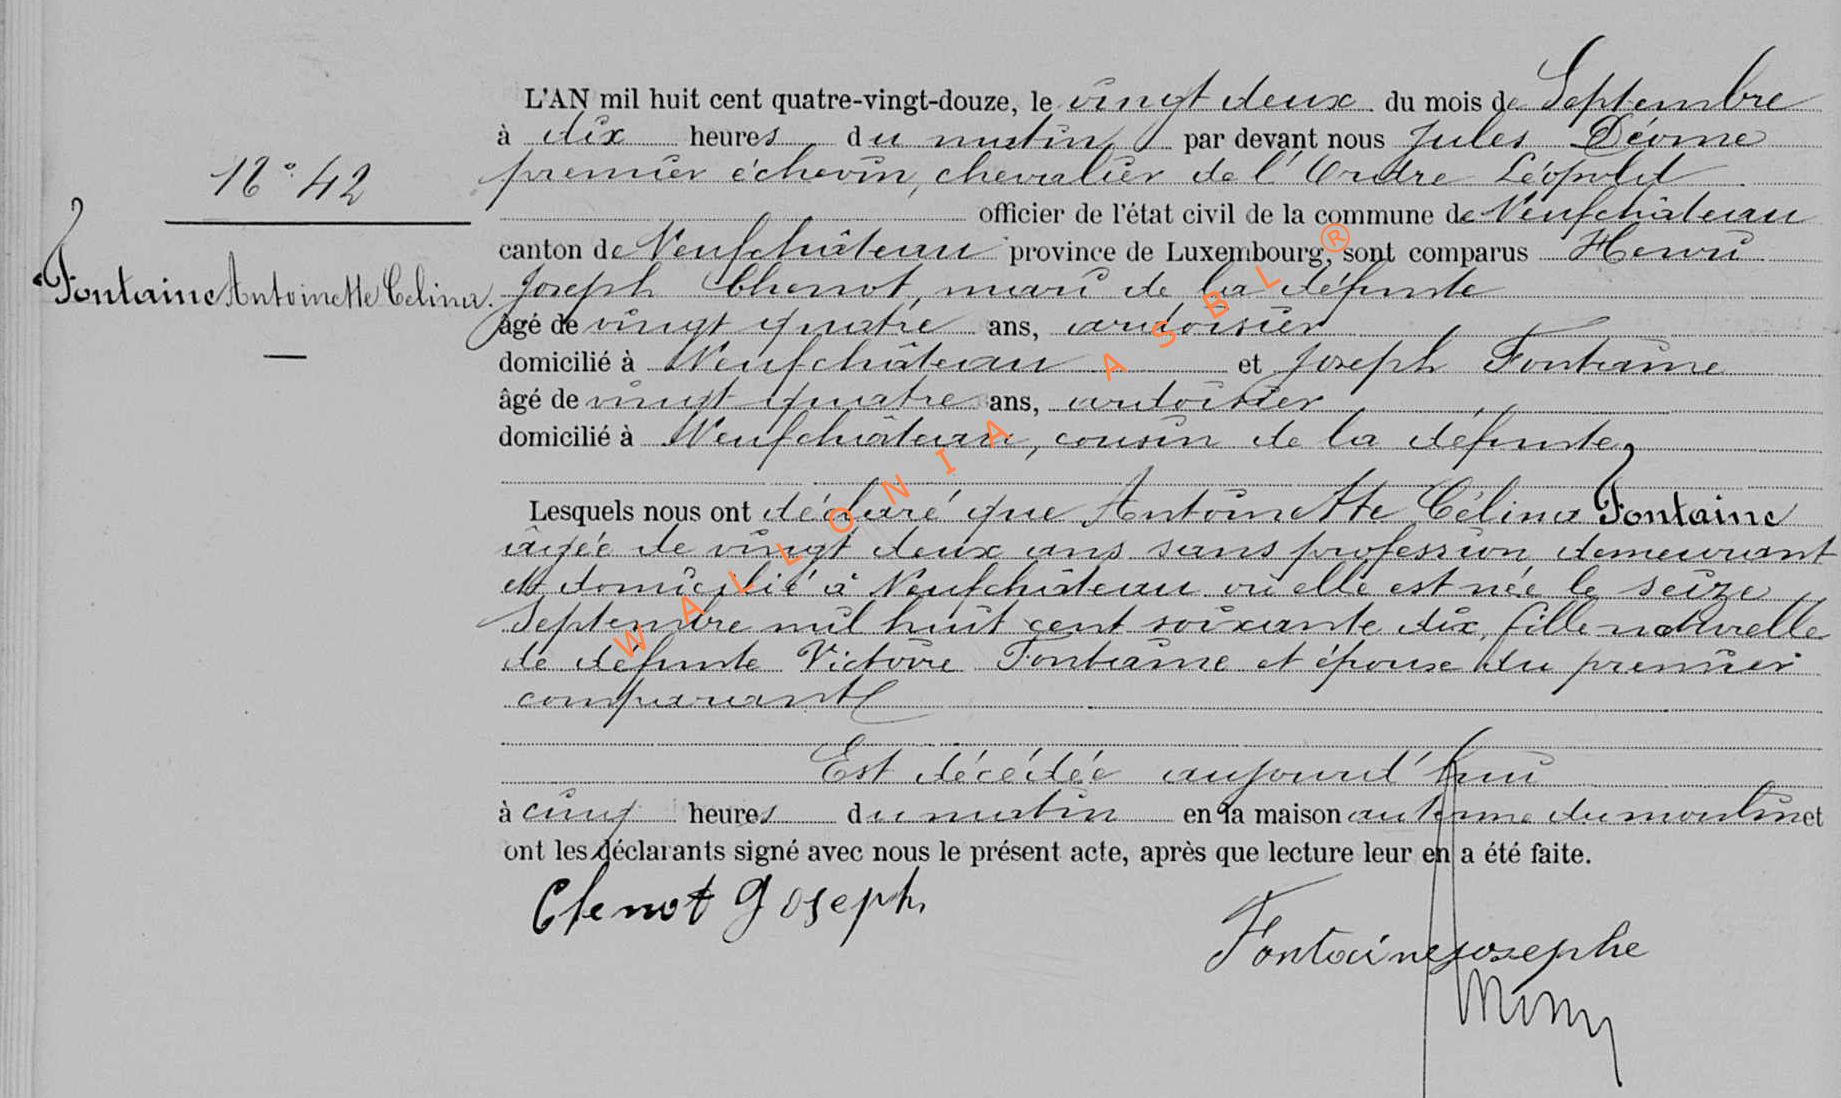 N° 42
Fontaine Antoinette Celina.
L'AN mil huit cent quatre-vingt-douze, le vingt deux du mois de Septembre
à dix heures du matin par devant nous Jules Déome
premier échevin, chevalier de l'Ordre Léopold
officier de l'état civil de la commune de Neufchâteau
canton de Neufchâteau province de Luxembourg, sont comparus Henri
Joseph Chenot, mari de la défunte
âgé de vingt quatre ans, ardoisier
domicilié à Neufchâteau et Joseph Fontaine
âgé de vingt quatre ans, ardoisier
domicilié à Neufchâteau, cousin de la défunte,
Lesquels nous ont déclaré que Antoinette Célina Fontaine
âgée de vingt deux ans sans profession demeurant
et domicilié à Neufchâteau où elle est née le seize
Septembre mil huit cent soixante dix, fille naturelle
de défunte Victoire Fontaine et épouse du premier
comparant
Est décédée aujourd'hui
à cinq heures du matin en la maison au terme du moulin et
ont les déclarants signé avec nous le présent acte, après que lecture leur en a été faite.
Chenot Joseph
Fontaine Josephe
WALLONIA ASBL ®